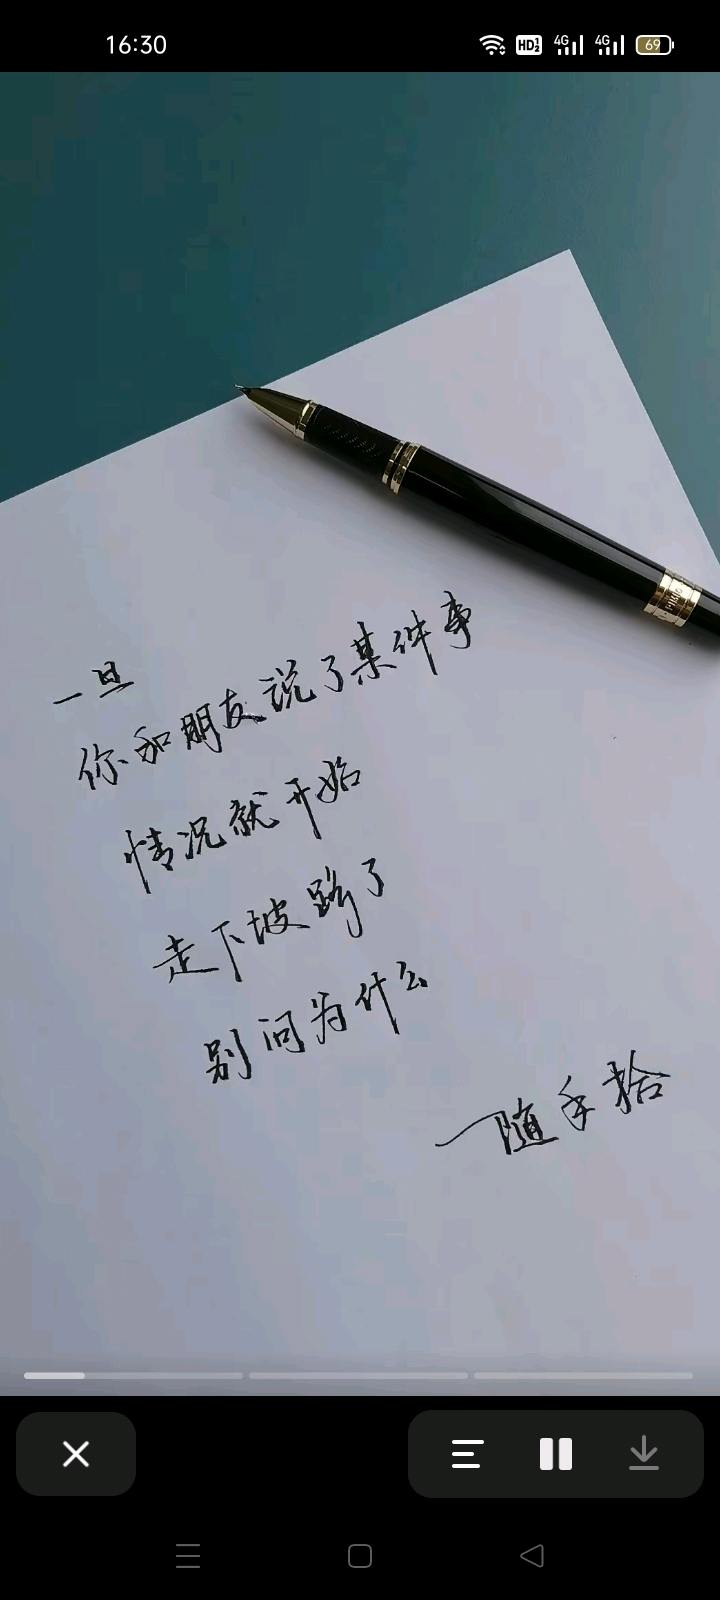 16:30
HD 1 2 4G 4G 69
一旦
你和朋友说了某件事
情况就开始
走下坡路了
别问为什么
一随手拾